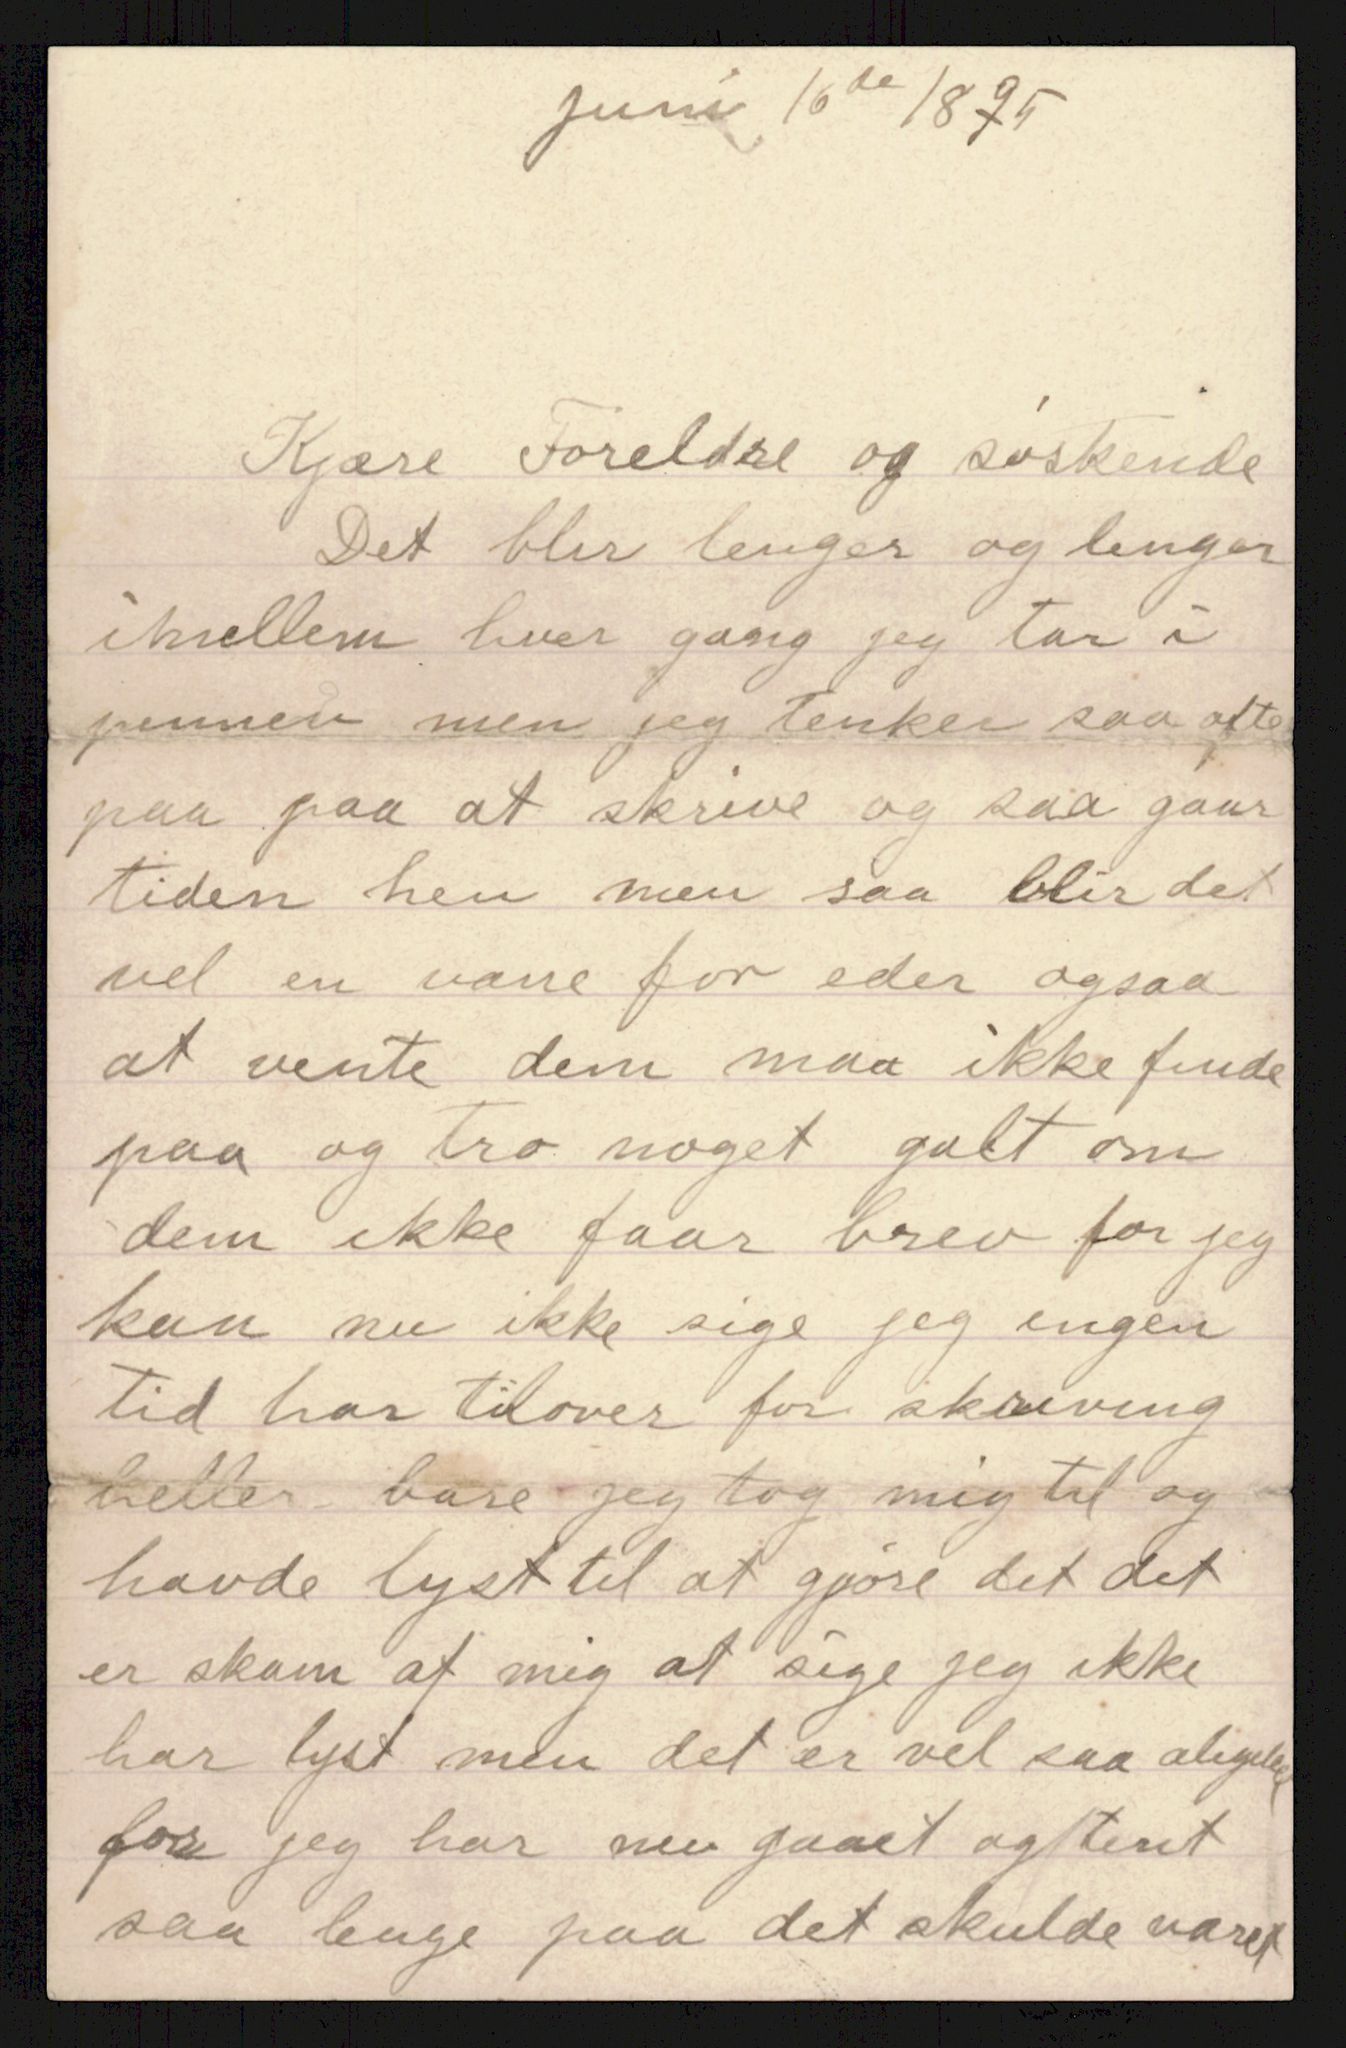 juni 16de 1895
Kjære Foreldre og søskende
Det blir lenger og lenger
imellem hver gang jeg tar i
pennen men jeg tenker saa ofte
paa paa at skrive og saa gaar
tiden hen men saa blir det
vel en vane for eder ogsaa
at vente dem maa ikke finde
paa og tro noget galt om
dem ikke faar brev for jeg
kan nu ikke sige jeg engen
tid har tilover for skriving
heller bare jeg tog mig til og
havde lyst til at gjøre det det
er skam af mig at sige jeg ikke
har lyst men det er vel saa
for jeg har nu gaaet og tent
saa lenge paa det skulde varet